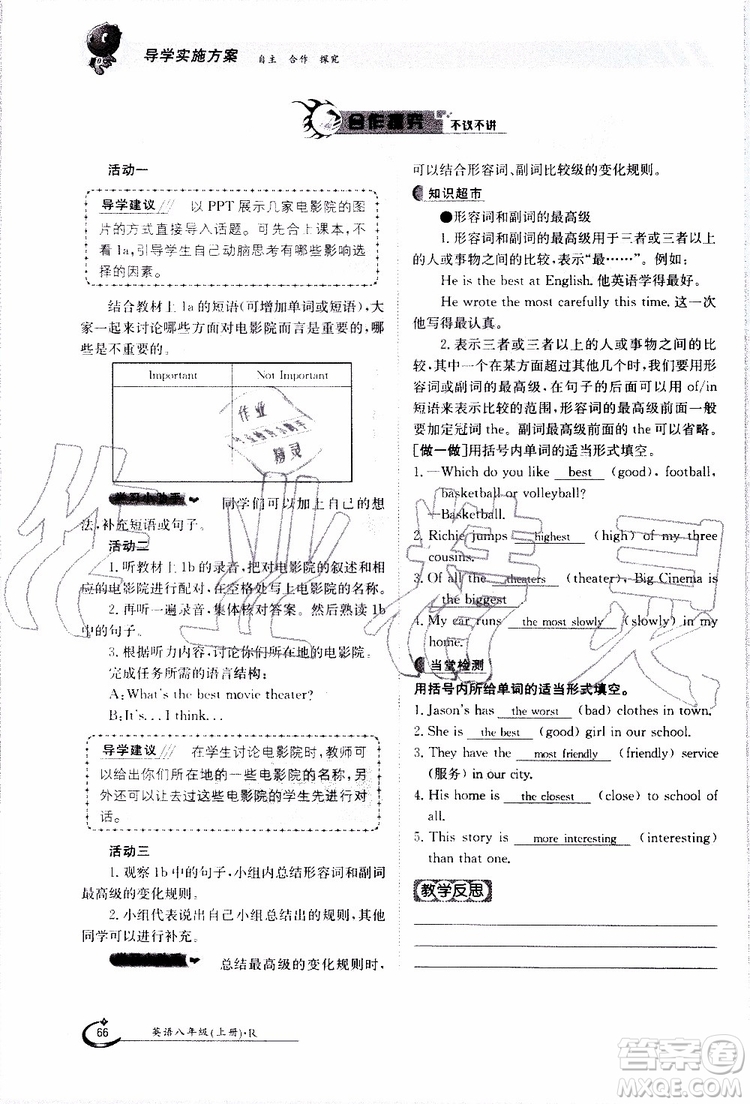 导学实施方案 自主 合作 探究
合作探究 不议不讲
活动一
导学建议 以 PPT 展示几家电影院的图
片的方式直接导入话题。可先合上课本,不
看 1a,引导学生自己动脑思考有哪些影响选
择的因素。
结合教材上 1a 的短语(可增加单词或短语),大
家一起来讨论哪些方面对电影院而言是重要的,哪
些是不重要的。
Important Not Important
学习小助手 同学们可以加上自己的想
法,补充短语或句子。
活动二
1.听教材上 1b 的录音,把对电影院的叙述和相
应的电影院进行连线,在空格处写上电影院的名称。
2.再听一遍录音,集体核对答案。然后熟读 1b
中的句子。
3.根据听力内容,小组讨论你们所在地的电影院,
完成任务所需的语言结构:
A:What's the best movie theater?
B:It's...I think...
导学建议 在学生讨论电影院时,教师可
以给出你们所在地的一些电影院的名称,另
外还可让去过这些电影院的学生先进行对
话。
活动三
1.观察 1b 中的句子,小组内总结形容词和副词
最高级的变化规则。
2.小组代表说出自己小组总结出的规则,其他
同学可以进行补充。
总结最高级的变化规则时,
66 英语八年级(上册)·R
可以结合形容词、副词比较级的变化规则。
知识超市
●形容词和副词的最高级
1.形容词和副词的最高级用于三者或三者以上
的人或事物之间的比较,表示“最……”。例如:
He is the best at English. 他英语学得最好。
He wrote the most carefully this time. 这一次
他写得最认真。
2.表示三者或三者以上的人或事物之间的比
较,其中一个在某方面超过其他几个时,用形
容词或副词的最高级,在句子的后面可以用 of/in
短语来表示比较的范围,形容词的最高级前面一般
要加定冠词 the。副词最高级前面的 the 可以省略。
[做一做]用括号内单词的适当形式填空。
1.—Which do you like best (good), football,
basketball or volleyball?
—Basketball.
2. Richie jumps highest (high) of my three
cousins.
3. Of all the theaters (theater), Big Cinema is
the biggest
4. My car runs the most slowly (slowly) in my
home.
当堂检测
用括号内所给单词的适当形式填空。
1. Jason's has the worst (bad) clothes in town.
2. She is the best (good) girl in our school.
3. They have the most friendly (friendly) service
(服务) in our city.
4. His home is the closest (close) to school of
all.
5. This story is more interesting (interesting)
than that one.
教学反思
作业精灵
答案圈
MXQE.COM